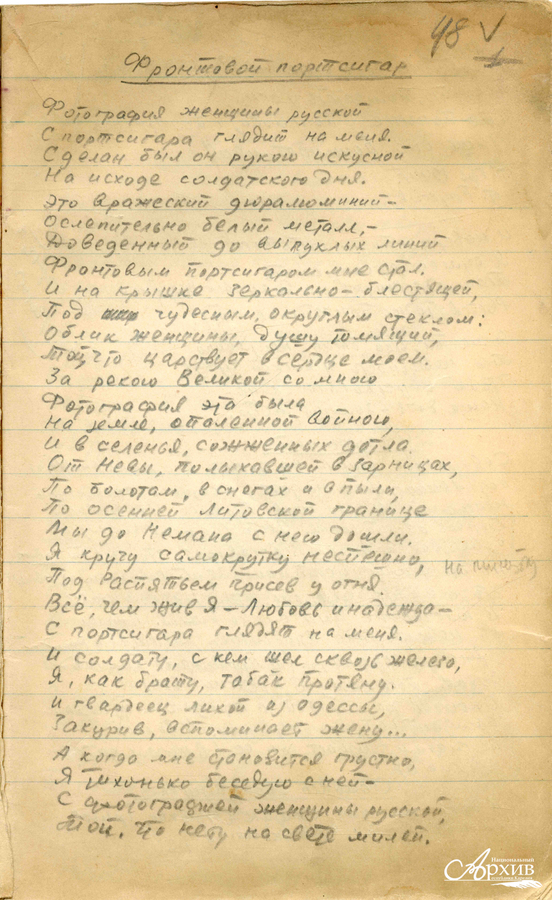 48 V
Фронтовой портсигар
Фотография женщины русской
С портсигара глядит на меня.
Сделан был он рукою искусной
На исходе солдатского дня.
Это вражеский дюралюминий –
Ослепительно белый металл, –
Доведенный до выпуклых линий
Фронтовым портсигаром мне стал.
И на крышке зеркально-блестящей,
Под чудесным, округлым стеклом:
Облик женщины, душу томящий,
Той, что царствует в сердце моем.
За рекою Великой со мною
Фотография эта была
На земле, опаленной войною,
И в селеньях, сожженных дотла.
От Невы, полыхавшей в зарницах,
По болотам, в снегах и в пыли,
По осенней Литовской границе
Мы до Немана с нею дошли.
Я кручу самокрутку неспешно,
Под Распятьем присев у огня.
Всё, чем жив я – Любовь и надежда –
С портсигара глядят на меня.
И солдату, с кем шел сквозь железо,
Я, как брату, табак протяну.
И гвардеец лихой из Одессы,
Закурив, вспоминает жену...
А когда мне становится грустно,
Я тихонько беседую с ней –
С фотографией женщины русской,
Той, что нету на свете милей.
Национальный
Архив